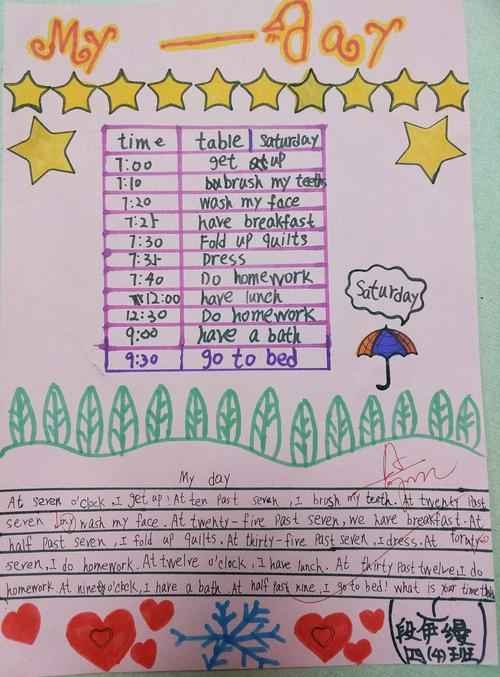 My — Day
time table Saturday
7:00 get up
7:10 brush my teeth
7:20 wash my face
7:25 have breakfast
7:30 Fold up quilts
7:35 Dress
7:40 Do homework
12:00 have lunch
12:30 Do homework
9:00 have a bath
9:30 go to bed
Saturday
My day
At seven o'clock, I get up! At ten past seven, I brush my teeth. At twenty past
seven my wash my face. At twenty-five past seven, we have breakfast. At
half past seven, I fold up quilts. At thirty-five past seven, I dress. At
seven, I do homework. At twelve o'clock, I have lunch. At thirty past twelve, I do
homework. At o'clock, I have a bath. At half past nine, I go to bed! what is your time
段伊缦
四(4)班